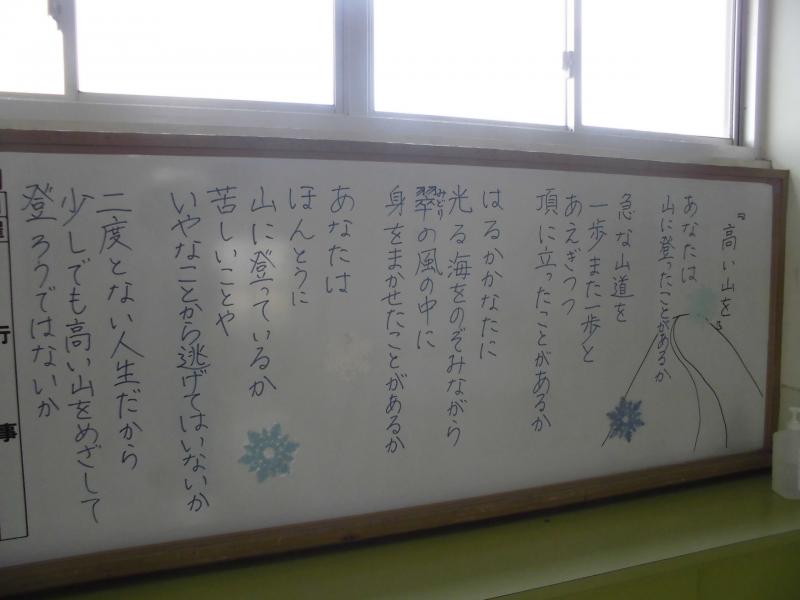 『高い山を』
あなたは
山に登ったことがあるか
急な山道を
一歩また一歩と
あえぎつつ
頂に立ったことがあるか
はるかかなたに
光る海をのぞみながら
翠の風の中に
みどり
身をまかせたことがあるか
あなたは
ほんとうに
山に登っているか
苦しいことや
いやなことから逃げてはいないか
二度とない人生だから
少しでも高い山をめざして
登ろうではないか
行
事